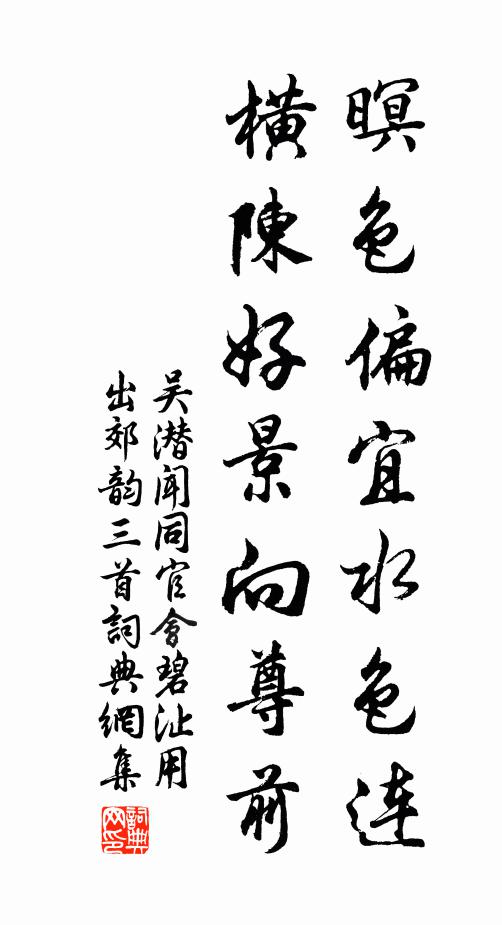 暝色偏宜水色连
橫陳好景向尊前
吴潜闻同官會碧沚用
出郊韵三首詞典網集
詞典网印